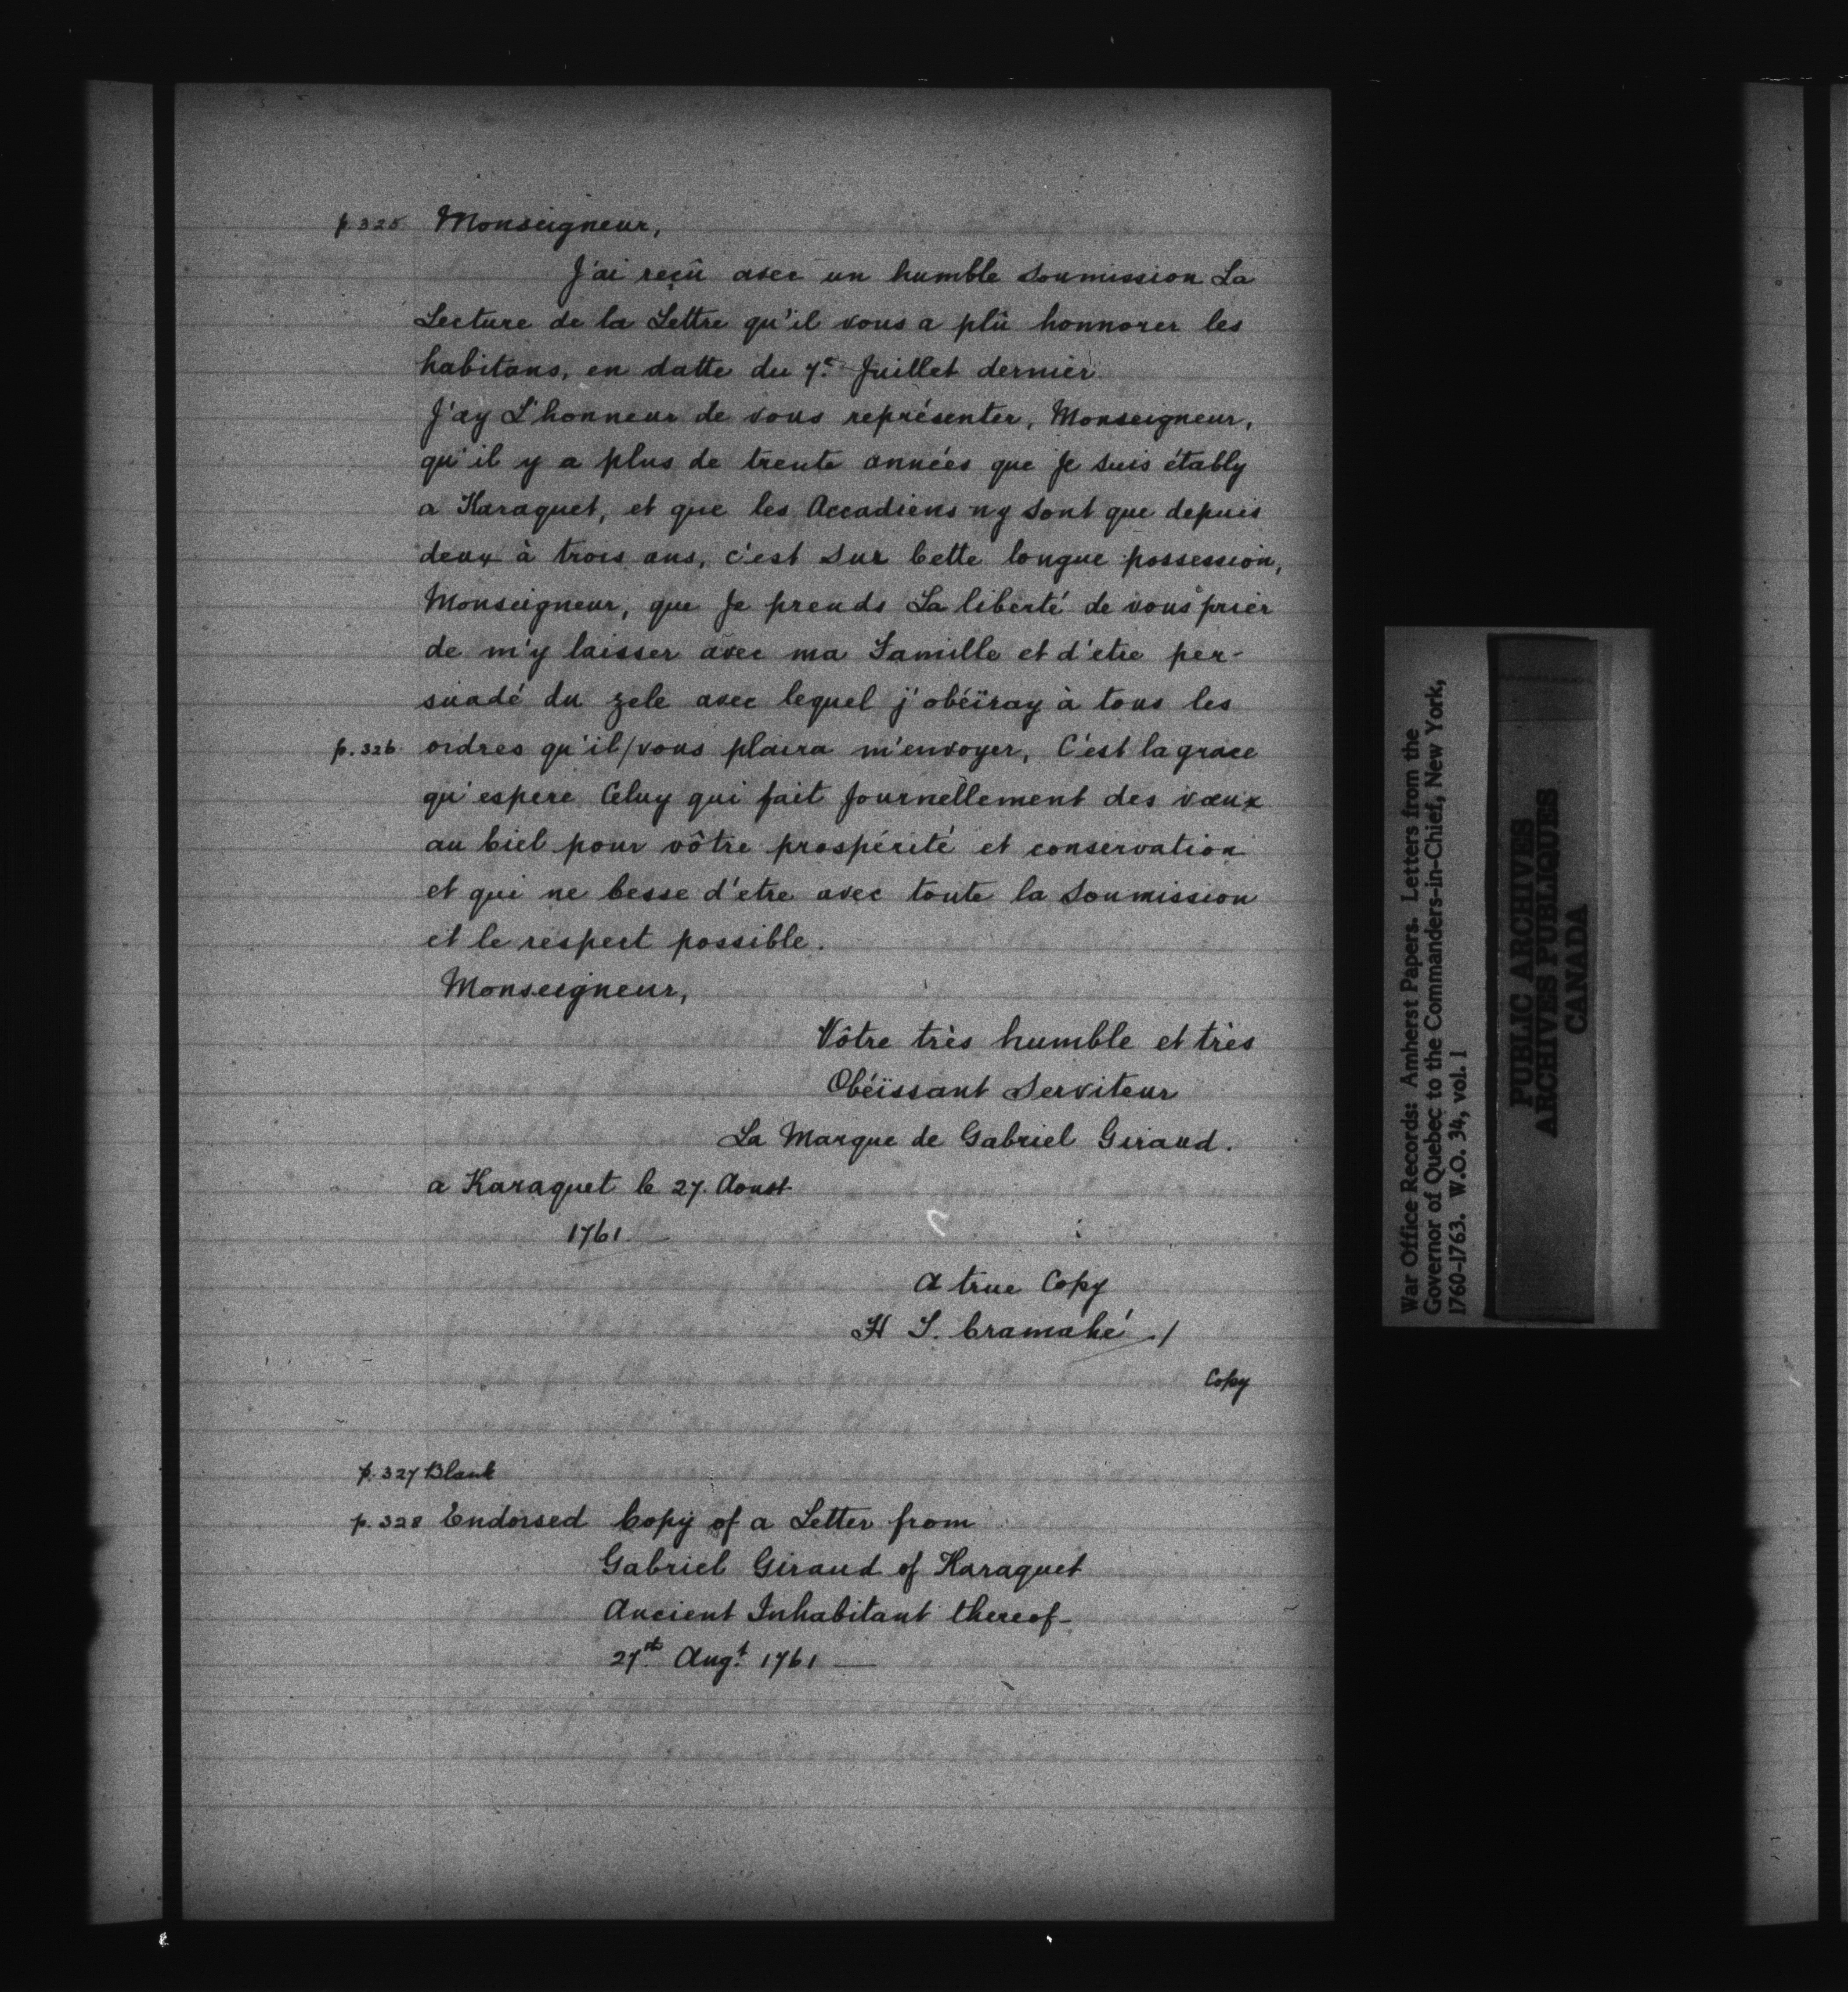 p. 325 Monseigneur,
J'ai reçû avec un humble Soumission La
Lecture de la Lettre qu'il vous a plû honnorer les
habitans, en datte du 7.e Juillet dernier.
J'ay L'honneur de vous représenter, Monseigneur,
qu'il y a plus de trente années que Je suis étably
a Karaquet, et que les Accadiens ny Sont que depuis
deux à trois ans, c'est Sur Cette longue possession,
Monseigneur, que Je prends La liberté de vous prier
de m'y laisser avec ma Famille et d'etre per-
suadé du zele avec lequel j'obéïray à tous les
p. 326 ordres qu'il/vous plaira m'envoyer, C'est la grace
qu'espere Celuy qui fait Journellement des vœux
au Ciel pour vôtre prospérité et conservation
et qui ne Cesse d'etre avec toute la Soumission
et le respect possible.
Monseigneur,
Vôtre très humble et très
Obéïssant Serviteur
La Marque de Gabriel Giraud.
a Karaquet le 27. Aoust
1761
A true Copy
H T. Cramahé ./
Copy
p. 327 Blank
p. 328 Endorsed Copy of a Letter from
Gabriel Giraud of Karaquet
Ancient Inhabitant thereof-
27th Augt. 1761
War Office Records: Amherst Papers. Letters from the
Governor of Quebec to the Commanders-in-Chief, New York,
1760-1763. W.O. 34, vol. 1
PUBLIC ARCHIVES
ARCHIVES PUBLIQUES
CANADA